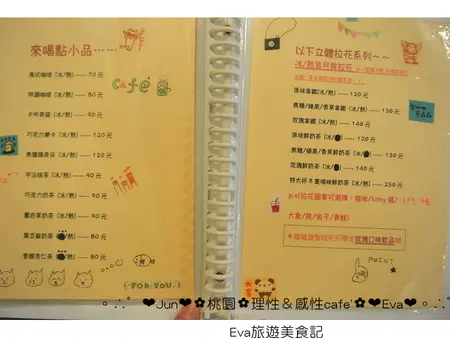 來喝點小品⋯⋯
美式咖啡 (冰/熱) ---- 70 元
拼圖咖啡 (冰/熱) ---- 80 元
卡布奇諾 (冰/熱) ---- 90 元
cafe
巧克力摩卡 (冰/熱) ---- 120 元
焦糖瑪奇朵 (冰/熱) ---- 120 元
宇治抹茶 (冰/熱) ---- 90 元
巧克力奶茶 (冰/熱) ---- 90 元
薰衣草奶茶 (冰/熱) ---- 90 元
黑芝麻奶茶 ---- 80 元
香醇杏仁茶 ---- 80 元
FOR YOU
以下立體拉花系列~~
冰/熱皆可做拉花
原味拿鐵 (冰/熱) ---- 120 元
焦糖/榛果/香草拿鐵 (冰/熱) ---- 130 元
玫瑰拿鐵 (冰/熱) ---- 140 元
原味鮮奶茶 (冰/熱) ---- 120 元
焦糖/榛果/香草鮮奶茶 (冰/熱) ---- 130 元
玫瑰鮮奶茶 (冰/熱) ---- 140 元
特大杯
(冰/熱) ---- 250 元
p.s(拉花圖案可選擇：貓咪/kitty 貓/
大象/熊/兔子/青蛙)
玫瑰口味飲品
POINT
❤Jun❤✿桃園✿理性&感性cafe'✿❤Eva❤
Eva旅遊美食記